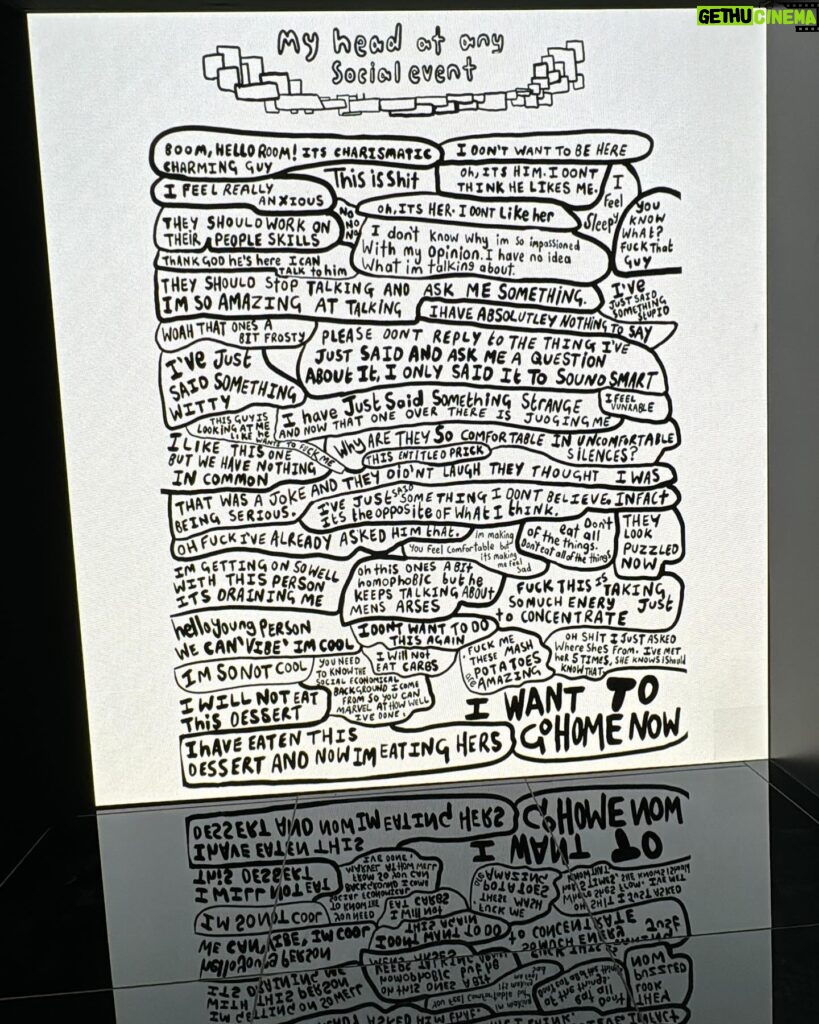 GETHU CINEMA
My head at any
Social event
BOOM, HELLO ROOM! ITS CHARISMATIC
CHARMING GUY
I DON'T WANT TO BE HERE
This is Shit
Oh, ITS HIM. I DONT
THINK HE LIKES ME.
I
feel
Sleepy
I FEEL REALLY
ANXIOUS
NO
NO
NO
Oh, ITS HER. I DONT Like her
YOU
KNOW
WHAT?
FUCK THAT
GUY
THEY SHOULD WORK ON
THEIR PEOPLE SKILLS
I don't know why im so impassioned
With my opinion. I have no idea
What im talking about.
THANK GOD he's here I CAN
TALK to him
THEY SHOULD STOP TALKING AND ASK ME SOMETHING.
IM SO AMAZING AT TALKING
I'VE
JUST SAID
SOMETHING
STUPID
I HAVE ABSOLUTLEY NOTHING TO SAY
WOAH THAT ONES A
BIT FROSTY
PLEASE DON'T REPLY to THE THING I'VE
JUST SAID AND ASK ME A QUESTION
ABOUT It, I ONLY SAID It TO SOUND SMART
I'VE JUST
SAID SOMETHING
WITTY
I have Just Said Something STRANGE
AND NOW THAT ONE OVER THERE IS JUDGING ME
I FEEL
VUNRABLE
THIS GUY IS
LOOKING AT ME
LIKE HE WANTS TO FUCK ME
I LIKE THIS ONE
BUT WE HAVE NOTHING
IN COMMON
Why ARE THEY SO COMFORTABLE IN UNCOMFORTABLE
SILENCES?
THIS ENTITLED PRICK
THAT WAS A JOKE AND THEY DID'NT LAUGH THEY THOUGHT I WAS
BEING SERIOUS.
I'VE JUST SAID SOMETHING I DONT BELIEVE, INFACT
ITS the OPPOSITE OF WHAT I THINK.
OH FUCK I'VE ALREADY ASKED HIM that.
Im making
You feel Comfortable but
its making
me feel
Sad
Don't
eat all
of the things.
Don't eat all of the things
THEY
LOOK
PUZZLED
NOW
IM GETTING ON SO WELL
WITH THIS PERSON
ITS DRAINING ME
Oh this ONES A BIt
homophobic but he
KEEPS TALKING ABOUT
MENS ARSES
FUCK THIS IS TAKING
SO MUCH ENERY JUST
to CONCENTRATE
hello young PERSON
WE CAN 'VIBE' IM COOL
I DONT WANT TO DO
THIS AGAIN
OH SHIT I JUST ASKED
Where SheS From. I'VE MET
her 5 TIMES, SHE KNOWS I Should
KNOW THAT
IM SO NOT COOL
YOU NEED
TO KNOW THE
SOCIAL ECONOMICAL
BACKGROUND I COME
FROM SO YOU CAN
MARVEL AT HOW WELL
IVE DONE.
I Will Not
EAT CARBS
FUCK ME
THESE MASH
POTATOES
ARE AMAZING
I WILL NOT EAT
THIS DESSERT
I WANT TO
GO HOME NOW
I HAVE EATEN THIS
DESSERT AND NOW IM EATING HERS